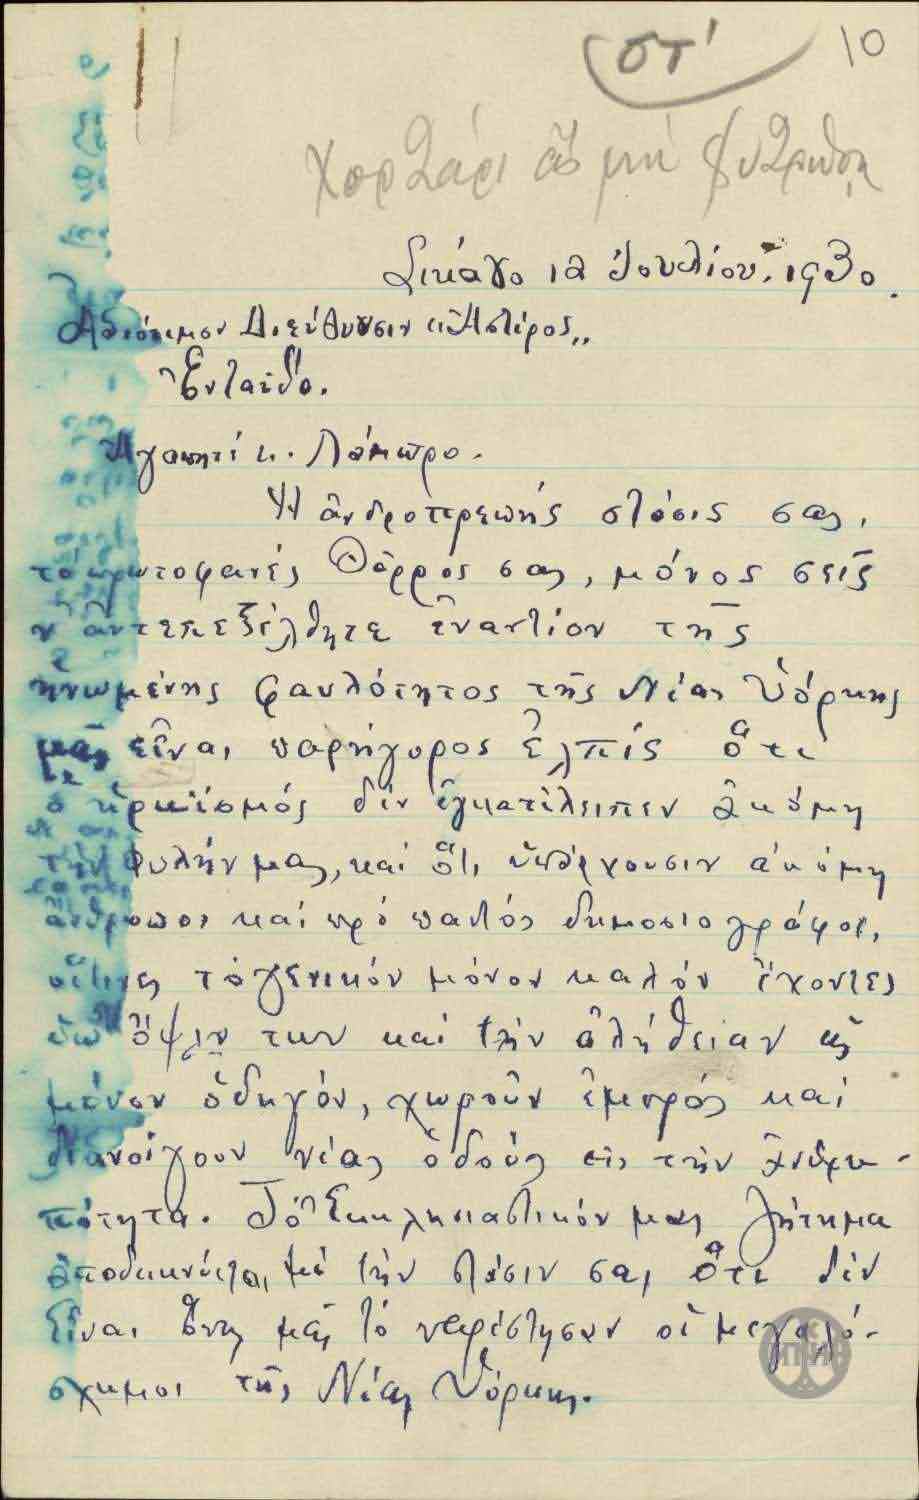 ΣΤ' 10
χορτάρι ἄς μή φυτρώσῃ
Σικάγο 12 Ἰουλίου 1930.
Ἀξιότιμον Διεύθυνσιν "Ἀστέρος"
Ἐνταῦθα.
Ἀγαπητέ κ. Λάμπρο.
Ἡ ἀνδροπρεπής στάσις σας,
τό πρωτοφανές Θάρρος σας, μόνος σεῖς
ν' ἀντεπεξέλθητε ἐναντίον τῆς
ἡνωμένης φαυλότητος τῆς Νέας Ὑόρκης
μᾶς εἶναι παρήγορος ἐλπίς ὅτι
ὁ ἡρωϊσμός δέν ἐγκατέλειπεν ἀκόμη
τήν φυλήν μας, καί ὅτι ὑπάρχουσιν ἀκόμη
ἄνθρωποι καί πρό παντός δημοσιογράφοι,
οἵτινες τό γενικόν μόνον καλόν ἔχοντες
ὑπ' ὄψιν των καί τήν ἀλήθειαν ὡς
μόνον ὁδηγόν, χωροῦν ἐμπρός καί
διανοίγουν νέας ὁδούς εἰς τήν ἀνθρω-
πότητα. Τό Ἐκκλησιαστικόν μας ζήτημα
ἀποδεικνύεται μέ τήν στάσιν σας ὅτι δέν
εἶναι ὅπως μᾶς τό παρέστησαν οἱ μεγαλό-
σχημοι τῆς Νέας Ὑόρκης.